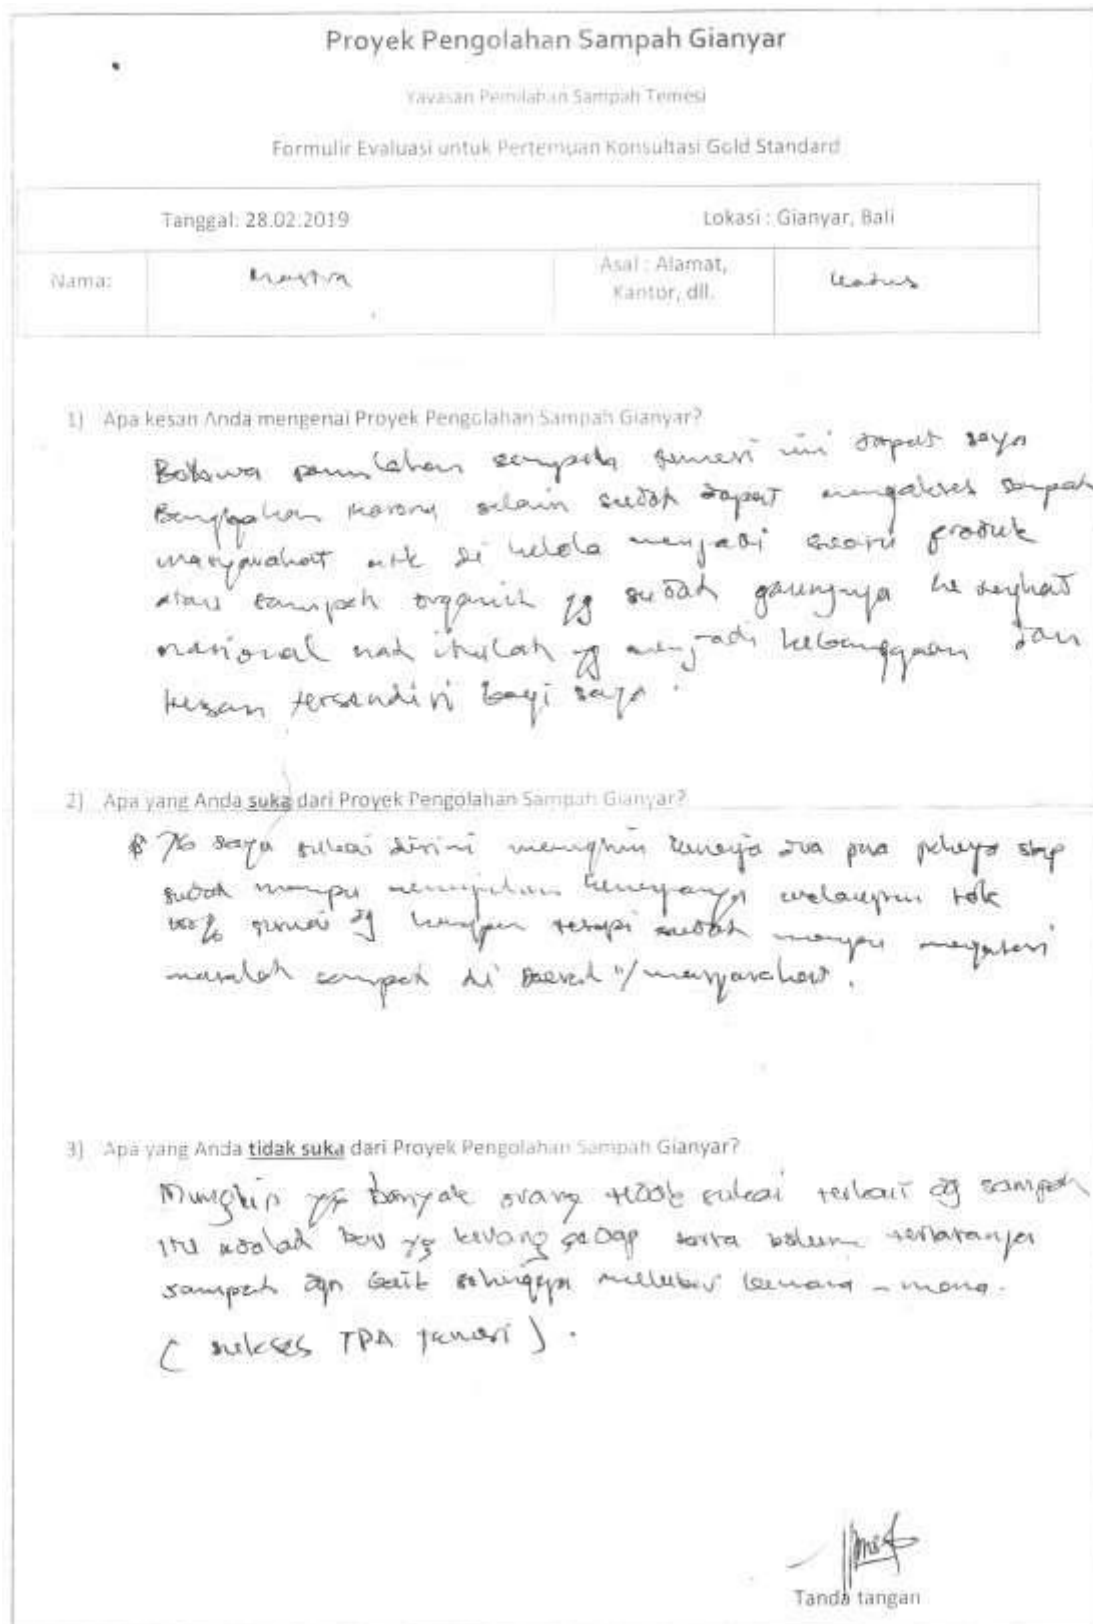 Proyek Pengolahan Sampah Gianyar
Yayasan Pemilahan Sampah Temesi
Formulir Evaluasi untuk Pertemuan Konsultasi Gold Standard
Tanggal: 28.02.2019 Lokasi : Gianyar, Bali
Nama: Asal : Alamat,
Kantor, dll.
1) Apa kesan Anda mengenai Proyek Pengolahan Sampah Gianyar?
Bahwa pemilahan sampah temesi ini dapat saya
Banggakan karena selain sudah dapat mengakses sampah
masyarakat utk di kelola menjadi suatu produk
atau sampah organik yg sudah gaungnya ke tingkat
nasional nah itulah yg menjadi kebanggaan dan
kesan tersendiri bagi saya.
2) Apa yang Anda suka dari Proyek Pengolahan Sampah Gianyar?
Yg saya sukai disini mungkin kinerja para
sudah mampu walaupun tdk
100% sesuai dg tetapi sudah mampu mengatasi
masalah sampah di daerah"/masyarakat.
3) Apa yang Anda tidak suka dari Proyek Pengolahan Sampah Gianyar?
Mungkin yg banyak orang tidak sukai terkait dg sampah
itu adalah bau yg kurang sedap serta belum tertatanya
sampah dgn baik sehingga meluber kemana-mana.
( sukses TPA temesi ).
Tanda tangan